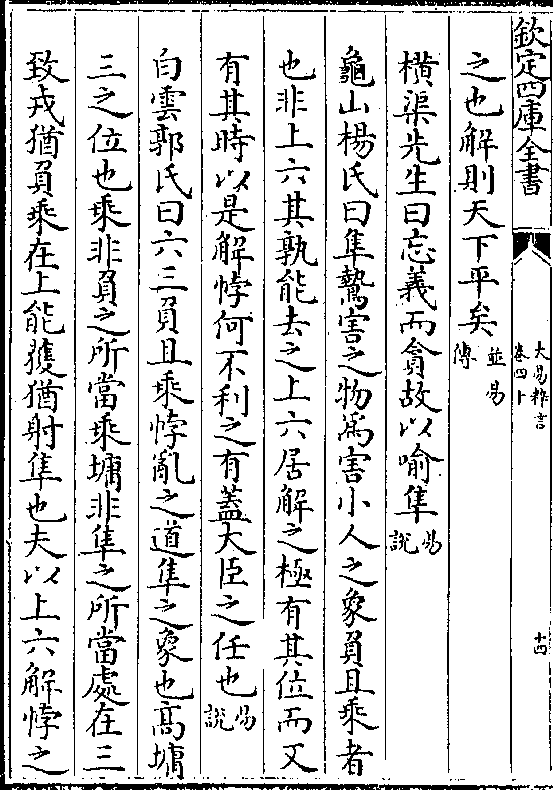 欽定四庫全書
大易粹言
卷四十
十四
之也解則天下平矣並易傳
橫渠先生曰忘義而貪故以喻隼易説
龜山楊氏曰隼鷙害之物爲害小人之象負且乘者
也非上六其孰能去之上六居解之極有其位而又
有其時以是解悖何不利之有蓋大臣之任也易説
白雲郭氏曰六三負且乘悖亂之道隼之象也高墉
三之位也乘非負之所當乘墉非隼之所當處在三
致戎猶負乘在上能獲猶射隼也夫以上六解悖之